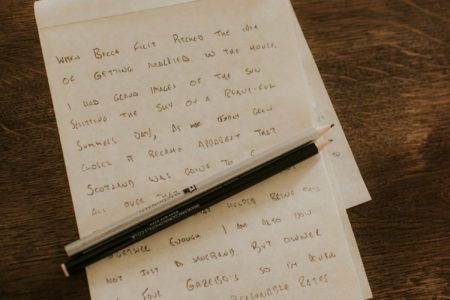 WHEN BECCA FIRST PITCHED THE IDEA
OF GETTING MARRIED IN THE HOUSE,
I HAD GRAND IMAGES OF THE SUN
SPLITTING THE SKY ON A BEAUTIFUL
SUMMERS DAY, AS THE DREW
CLOSER IT BECAME APPARENT THAT
SCOTLAND WAS GOING TO
ALL OVER THAT
HELPED BRING THIS
ENOUGH I AM ALSO NOW
NOT JUST A HUSBAND, BUT OWNER
FOUR GAZEBO'S SO I'M
REASONABLE RATES.